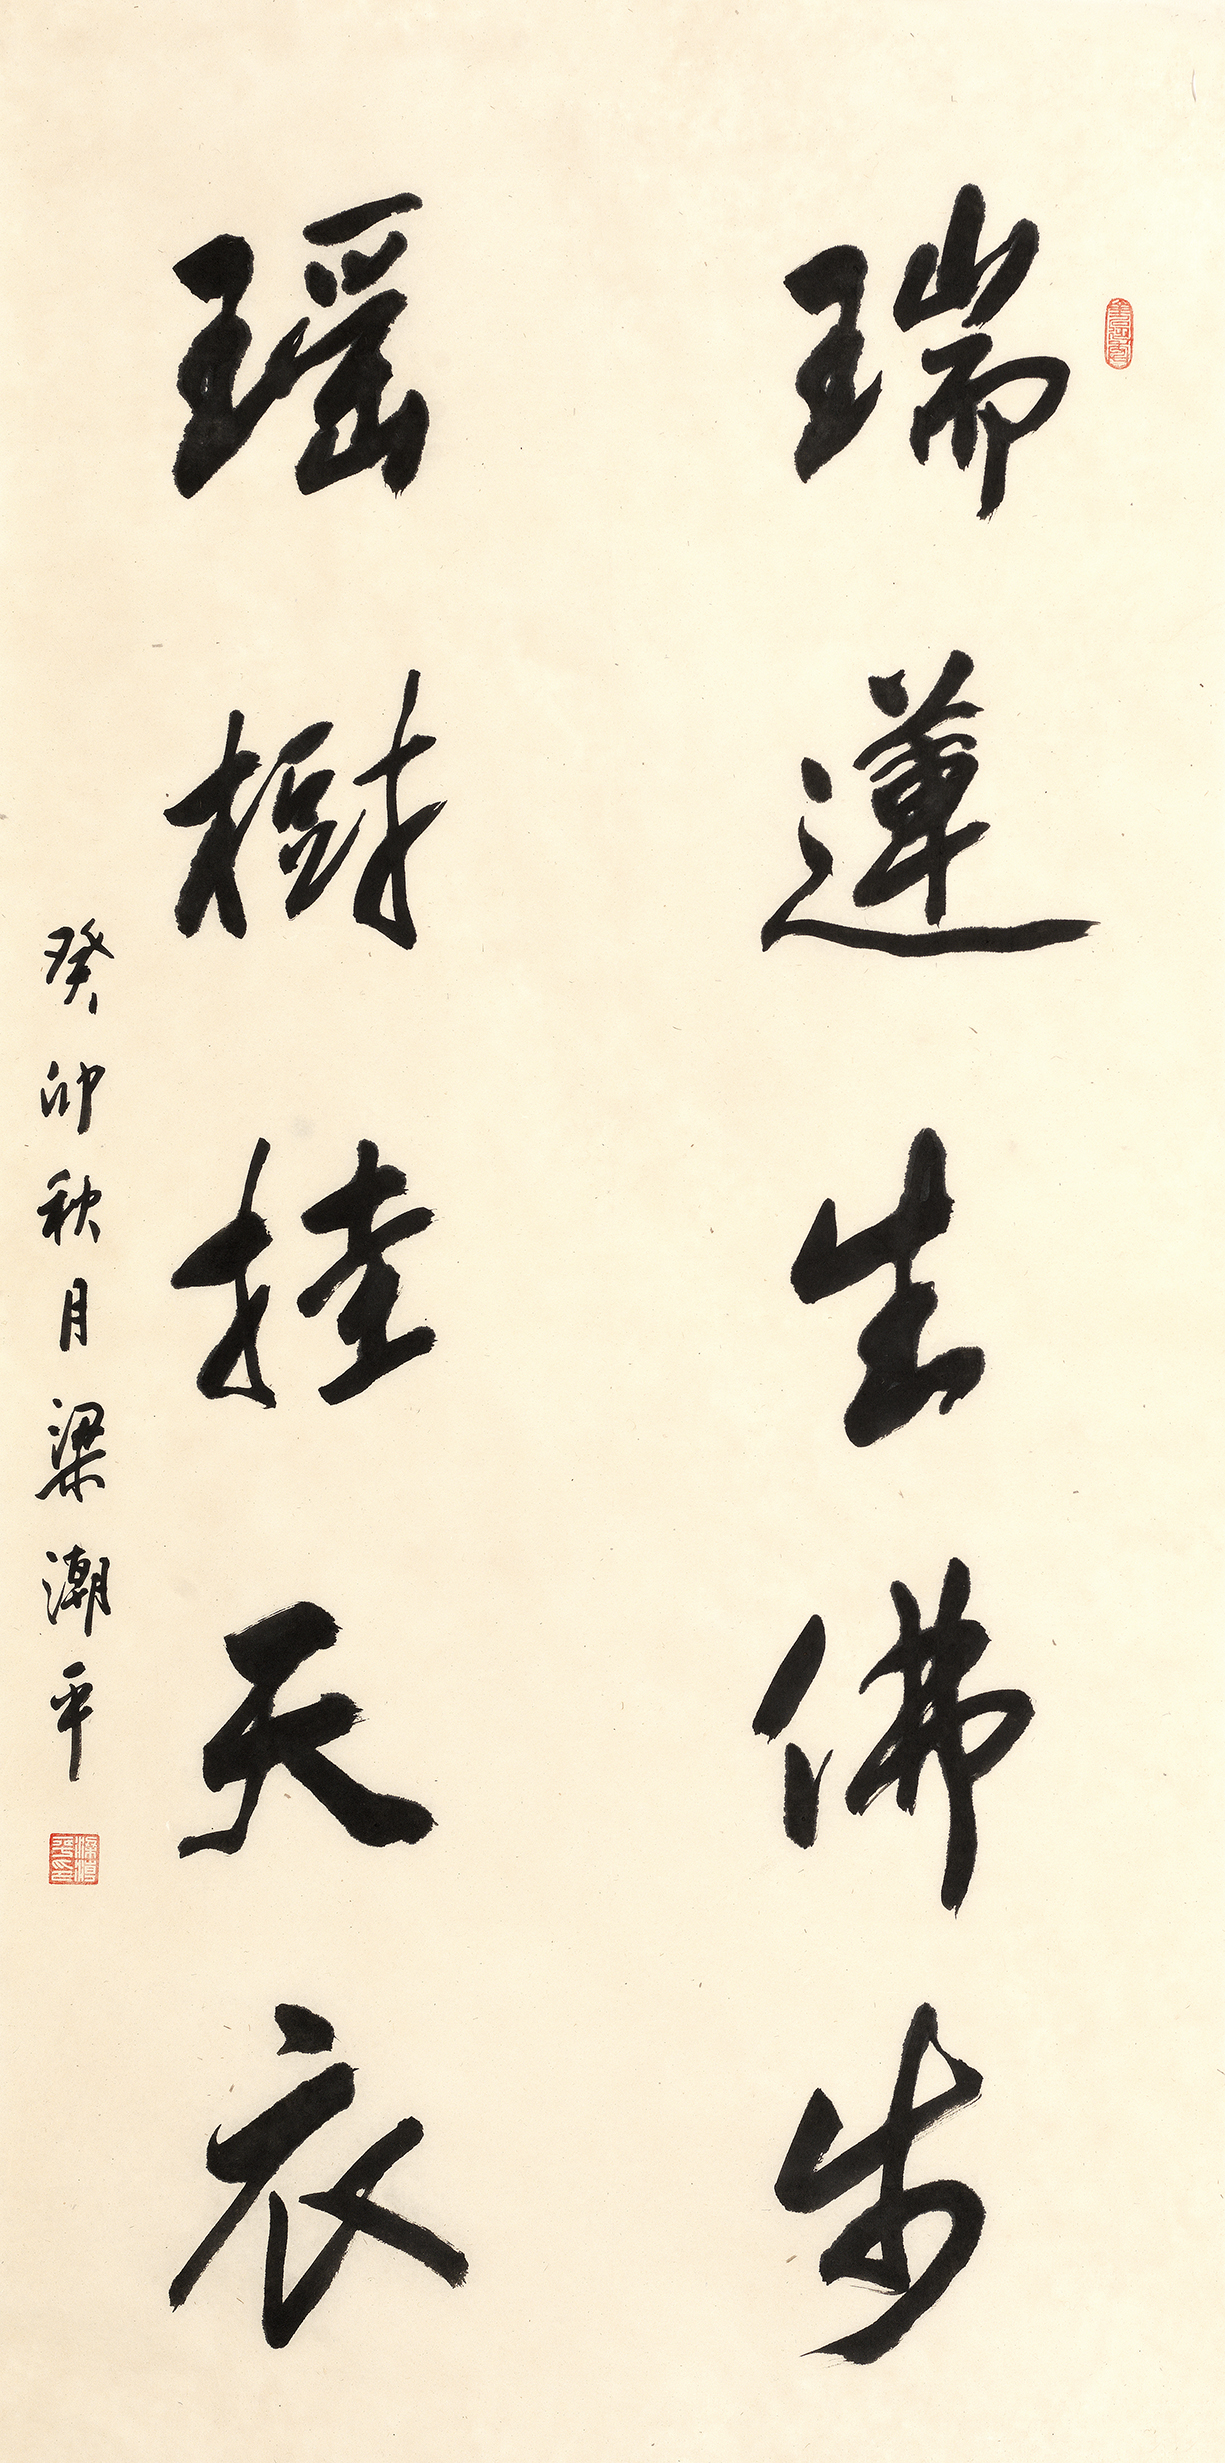 瑞蓮生佛步
瑶樹挂天衣
癸卯秋月梁潮平